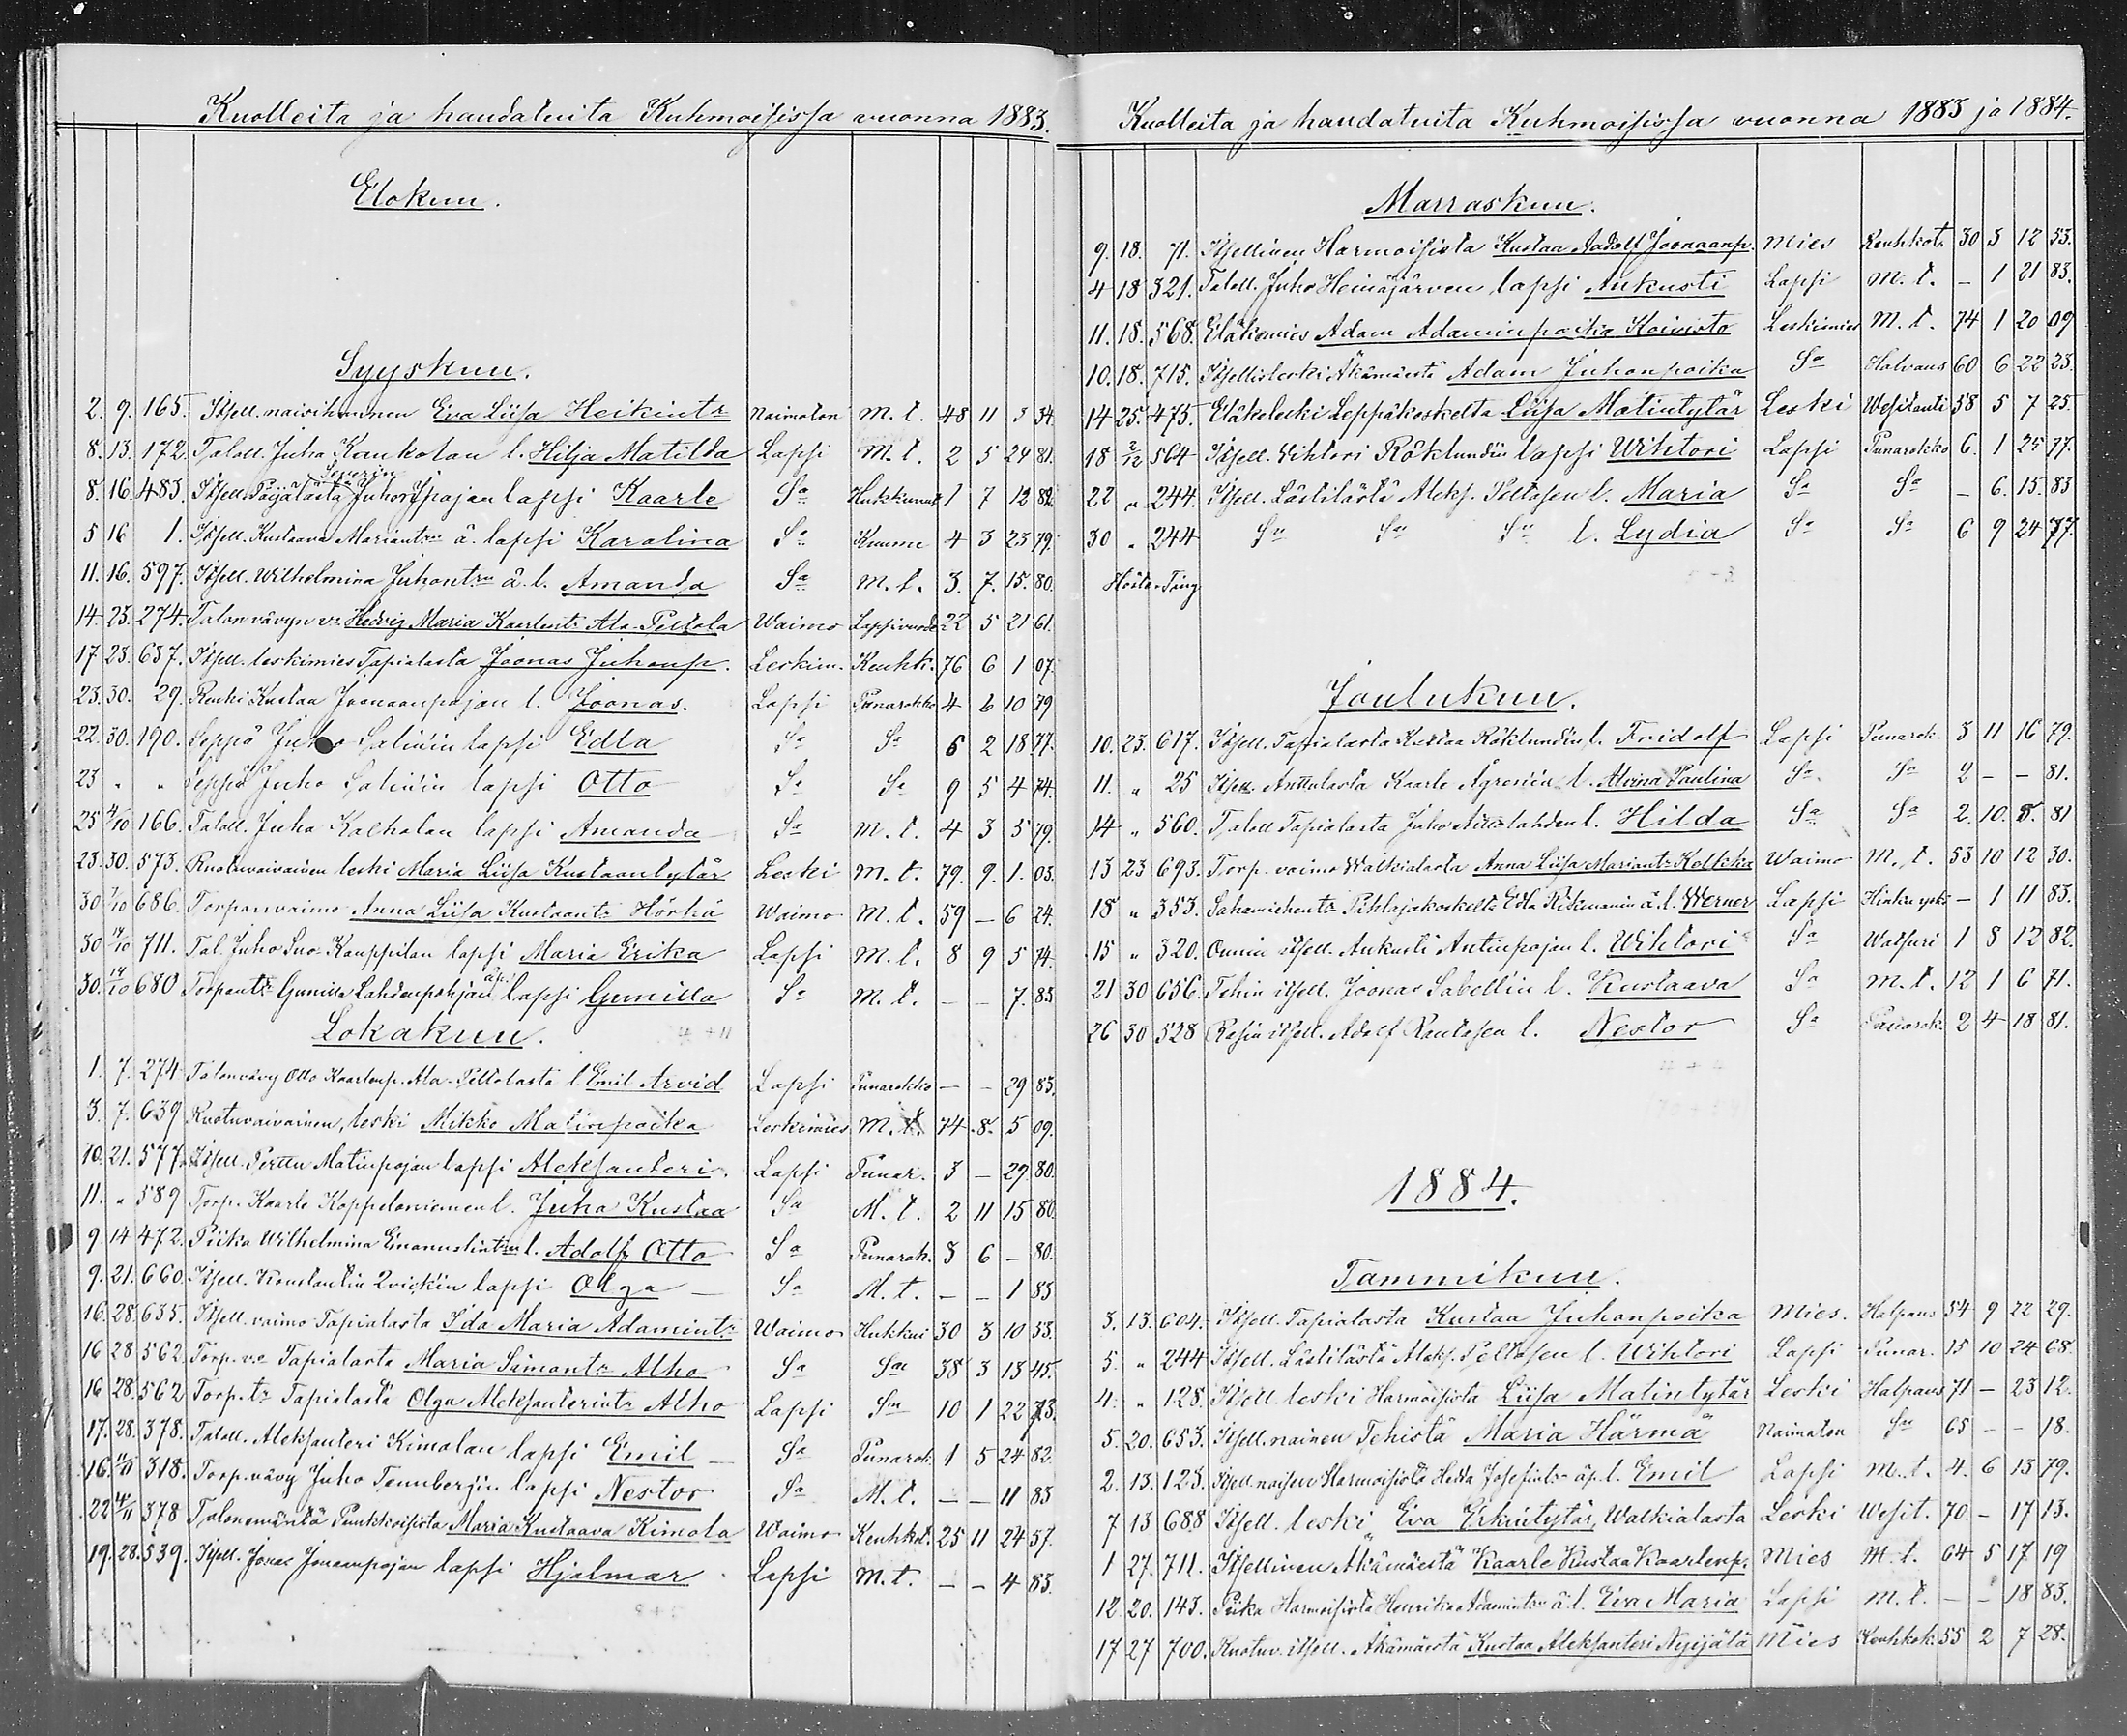 Kuolleita ja haudatuita Kuhmoisissa vuonna 1883.
Elokuu.
Syyskuu.
2. 9. 165. Itsell. naisihminen Eva Liisa Heikintr Naimaton M. t. 48 11 3 34.
8. 13. 172. Taloll. Juha Kaukolan l. Hilja Matilda Lapsi M. t. 2 5 24 81.
Severin
8. 16. 483. Itsell. Päijälästä Juhonpojan lapsi Kaarle Sa Hukkunut 1 7 12 82.
5 16 1. Itsell. Kustaava Mariantr ä. lapsi Karolina Sa Kuume 4 3 23 79.
11. 16. 597. Itsell. Wilhelmina Juhontrn ä. l. Amanda Sa M. t. 3. 7. 15. 80.
14. 23. 274. Talon vävyn v. Hedvig Maria Kaarlentr Ala-Peltola Waimo Lapsivuode 22 5 21 61.
17. 23. 637. Itsell. leskimies Tapialasta Joonas Juhonp. Leskim. Keuhk. 76 6 1 07.
23. 30. 29. Renki Kustaa Joonaanpojan l. Joonas. Lapsi Punarokko 4 6 10 79
22. 30. 190. Seppä Juho Salinin lapsi Edla Sa Sa 6 2 18 77.
23 " " Seppä Juho Salinin lapsi Otto Sa Sa 9 5 4 74.
25 4/10 166. Taloll. Juha Kalholan lapsi Amanda Sa M. t. 4 3 5 79.
23. 30. 573. Ruotuvaivainen leski Maria Liisa Kustaantytär Leski M. t. 79. 9. 1. 03.
30 7/10 686. Torpanvaimo Anna Liisa Kustaantr Hörhä Waimo M. t. 59 – 6 24.
30 14/10 711. Tal. Juho Suo Kauppilan lapsi Maria Erika Lapsi M. t. 8 9 5 74.
30. 14/10 680 Torpantr Gunilla Lahdenpohjan äp. lapsi Gunilla Sa M. t. – – 7. 83
Lokakuu.
1. 7. 274 Talonvävy Otto Kaarlonp. Ala-Peltolasta l. Emil Arvid Lapsi Punarokko – – 29 83.
3. 7. 639 Ruotuvaivainen, leski Mikko Matinpoika Leskimies M. t. 74. 8. 5 09.
10. 21. 577. Itsell. Perttu Matinpojan lapsi Aleksanteri. Lapsi Punar. 3 – 29. 80.
11. " 589 Torp. Kaarle Koppeloniemen l. Juha Kustaa Sa M. t. 2 11 15 80.
9. 14 472. Piika Wilhelmina Emanuelintrn l. Adolf Otto Sa Punarok. 3 6 – 80.
9. 21. 660. Itsell. Konstantin Qvickin lapsi Olga – Sa M. t. – – 1 83
16. 28. 635. Itsell. vaimo Tapialasta Ida Maria Adamintr Waimo Hukkui 30 3 10 53.
16 28 562 Torp. vo Tapialasta Maria Simontr Alho Sa Sa 38 3 13 45.
16 28. 562 Torp. tr Tapialasta Olga Aleksanterintr Alho Lapsi Sa 10 1 22 73.
17. 28. 378. Taloll. Aleksanteri Kimolan lapsi Emil – Sa Punarok. 1 5 24 82.
16. 11/11 318. Torp. vävy Juho Tennbergin lapsi Nestor Sa M. t. – – 11 83
22 4/11 378 Talonemäntä Puukkoisista Maria Kustaava Kimola Waimo Keuhkot. 25 11 24 57.
19. 28. 539. Itsell. Jonas Jonaanpojan lapsi Hjalmar. Lapsi M. t. – – 4 83.
Kuolleita ja haudatuita Kuhmoisissa vuonna 1883 ja 1884.
Marraskuu.
9. 18. 71. Itsellinen Harmoisista Kustaa Aadolf Joonaanp. Mies Keuhkot. 30 3 12 53.
4 18 321. Taloll. Juho Heinäjärven lapsi Aukusti Lapsi M. t. – 1 21 83.
11. 18. 568. Eläkemies Adam Adaminpoika Koivisto Leskimies M. t. 74 1 20 09
10. 18. 715. Itsellisleski Äkämäestä Adam Juhonpoika Sa Halvaus 60 6 22 23.
14 25. 475. Eläkeleski Leppäkoskelta Liisa Matintytär Leski Wesitauti 58 5 7 25.
18 2/12 564 Itsell. Wihtori Röklundin lapsi Wihtori Lapsi Punarokko 6. 1 25 77.
22 " 244. Itsell. Lästilästä Aleks. Peltosen l. Maria Sa Sa – 6. 15. 83
30 " 244 Sn Sn Sn l. Lydia Sa Sa 6 9 24 77.
Höste-Ting
Joulukuu.
10. 23. 617. Itsell. Tapialasta Kustaa Röklundin l. Fridolf Lapsi Punarok. 3 11 16 79.
11. " 25 Itsell. Anttulasta Kaarle Agrenin l. Alvina Paulina Sa Sa 2 – – 81.
14 " 560. Taloll. Tapialasta Juho l. Hilda Sa Sa 2. 10. 8. 81
13 23 693. Torp. vaimo Walkialasta Anna Liisa Mariantr Kelkka Waimo M. t. 53 10 12 30.
18 " 353. Sahamiehentr Pihlajakoskelta Edla ä. l. Werner Lapsi Hinkuyskä – 1 11 83.
15 " 320. Onnin itsell. Aukusti Antinpojan l. Wihtori Sa Watsuri 1 8 12 82.
21 30 656. Tehin itsell. Joonas Sabellin l. Kustaava Sa M. t. 12 1 6 71.
26 30 528 Rasin itsell. Adolf Rautasen l. Nestor Sa Punarok. 2 4 18 81.
1884.
Tammikuu.
3. 13. 604. Itsell. Tapialasta Kustaa Juhonpoika Mies. Halvaus 54 9 22 29.
5. " 244 Itsell. Lästilästä Aleks. Peltosen l. Wihtori Lapsi Punar. 15 10 24 68.
4. " 128. Itsell. leski Harmoisista Liisa Matintytär Leski Halvaus 71 – 23 12.
5. 20. 653. Itsell. nainen Tehistä Maria Härmä Naimaton Sa 65 – – 18.
2. 13. 123. Itsell. naisen Harmoisista Hedda Josefintrn äp. l. Emil Lapsi M. t. 4. 6 13 79.
7 13 688 Itsell. leski Eva Erkintytär, Walkialasta Leski Wesit. 70. – 17 13.
1 27. 711. Itsellinen Äkämäestä Kaarle Kustaa Kaarlenp. Mies M. t. 64 5 17 19
12. 20. 143. Piika Harmoisista Henrika Adamintrn ä. l. Eva Maria Lapsi M. t. – – 18 83.
17 27 700. Ruotuv. itsell. Äkämäestä Kustaa Aleksanteri Nyijälä Mies Keuhkok. 55 2 7 28.